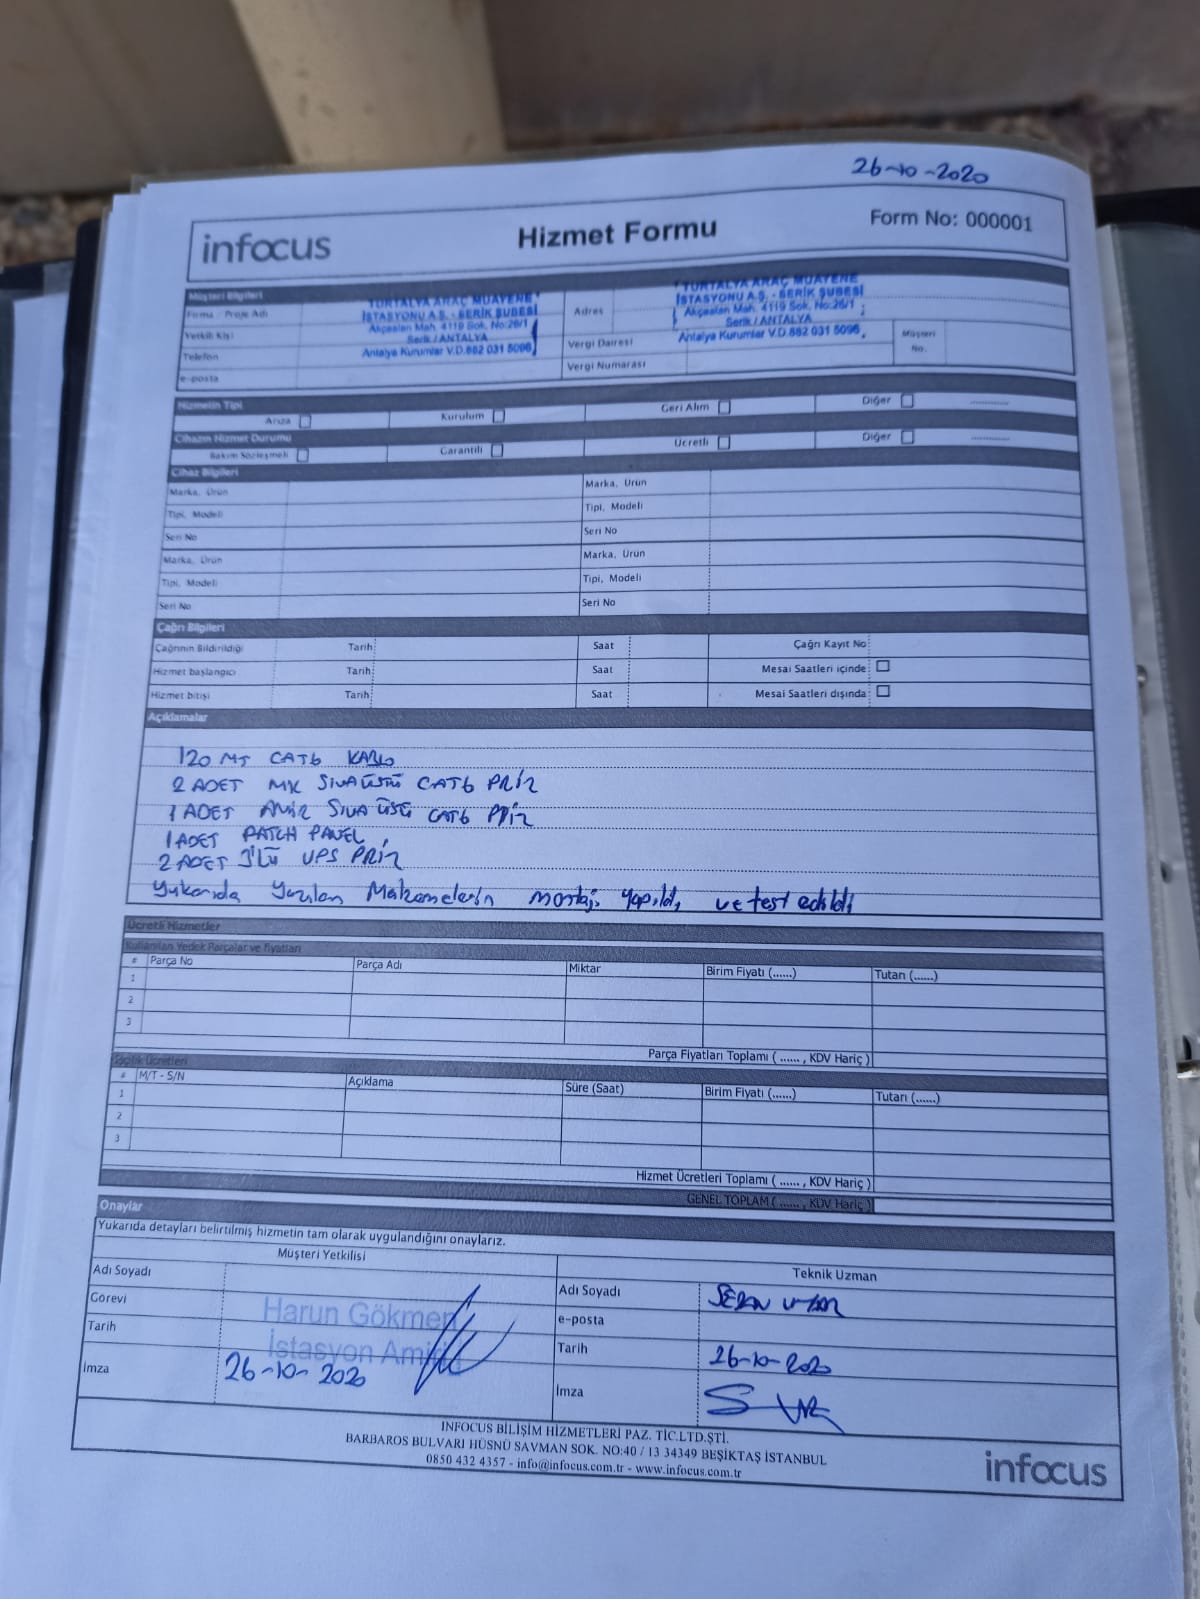 26-10-2020
infocus
Hizmet Formu
Form No: 000001
Müşteri Bilgileri
Firma / Proje Adı
TÜRTALYA ARAÇ MUAYENE
İSTASYONU A.Ş. - SERİK ŞUBESİ
Akçaalan Mah. 4119 Sok. No:26/1
Serik / ANTALYA
Antalya Kurumlar V.D. 882 031 5096
Adres
TÜRTALYA ARAÇ MUAYENE
İSTASYONU A.Ş. - SERİK ŞUBESİ
Akçaalan Mah. 4119 Sok. No:26/1
Serik / ANTALYA
Antalya Kurumlar V.D. 882 031 5096
Yetkili Kişi
Telefon
e-posta
Vergi Dairesi
Müşteri No.
Vergi Numarası
Hizmetin Tipi
Arıza Kurulum Geri Alım Diğer ............
Cihazın Hizmet Durumu
Bakım Sözleşmeli Garantili Ücretli Diğer ............
Cihaz Bilgileri
Marka, Ürün Marka, Ürün
Tipi, Modeli Tipi, Modeli
Seri No Seri No
Marka, Ürün Marka, Ürün
Tipi, Modeli Tipi, Modeli
Seri No Seri No
Çağrı Bilgileri
Çağrının Bildirildiği Tarih Saat Çağrı Kayıt No
Hizmet başlangıcı Tarih Saat Mesai Saatleri içinde
Hizmet bitişi Tarih Saat Mesai Saatleri dışında
Açıklamalar
120 MT CAT6 KABLO
2 ADET MK SIVAÜSTÜ CAT6 PRİZ
1 ADET AMİR SIVA ÜSTÜ CAT6 PRİZ
1 ADET PATCH PANEL
2 ADET 3'LÜ UPS PRİZ
Yukarıda Yazılan Malzemelerin montajı yapıldı ve test edildi
Ücretli Hizmetler
Kullanılan Yedek Parçalar ve fiyatları
# Parça No Parça Adı Miktar Birim Fiyatı (......) Tutarı (......)
1
2
3
Parça Fiyatları Toplamı ( ...... , KDV Hariç )
İşçilik Ücretleri
# M/T - S/N Açıklama Süre (Saat) Birim Fiyatı (......) Tutarı (......)
1
2
3
Hizmet Ücretleri Toplamı ( ...... , KDV Hariç )
GENEL TOPLAM ( ...... , KDV Hariç )
Onaylar
Yukarıda detayları belirtilmiş hizmetin tam olarak uygulandığını onaylarız.
Müşteri Yetkilisi Teknik Uzman
Adı Soyadı
Görevi
Harun Gökmen
İstasyon Amiri
Tarih
26-10-2020
İmza
Adı Soyadı
e-posta
Tarih 26-10-2020
İmza
INFOCUS BİLİŞİM HİZMETLERİ PAZ. TİC.LTD.ŞTİ.
BARBAROS BULVARI HÜSNÜ SAVMAN SOK. NO:40 / 13 34349 BEŞİKTAŞ İSTANBUL
0850 432 4357 - info@infocus.com.tr - www.infocus.com.tr
infocus